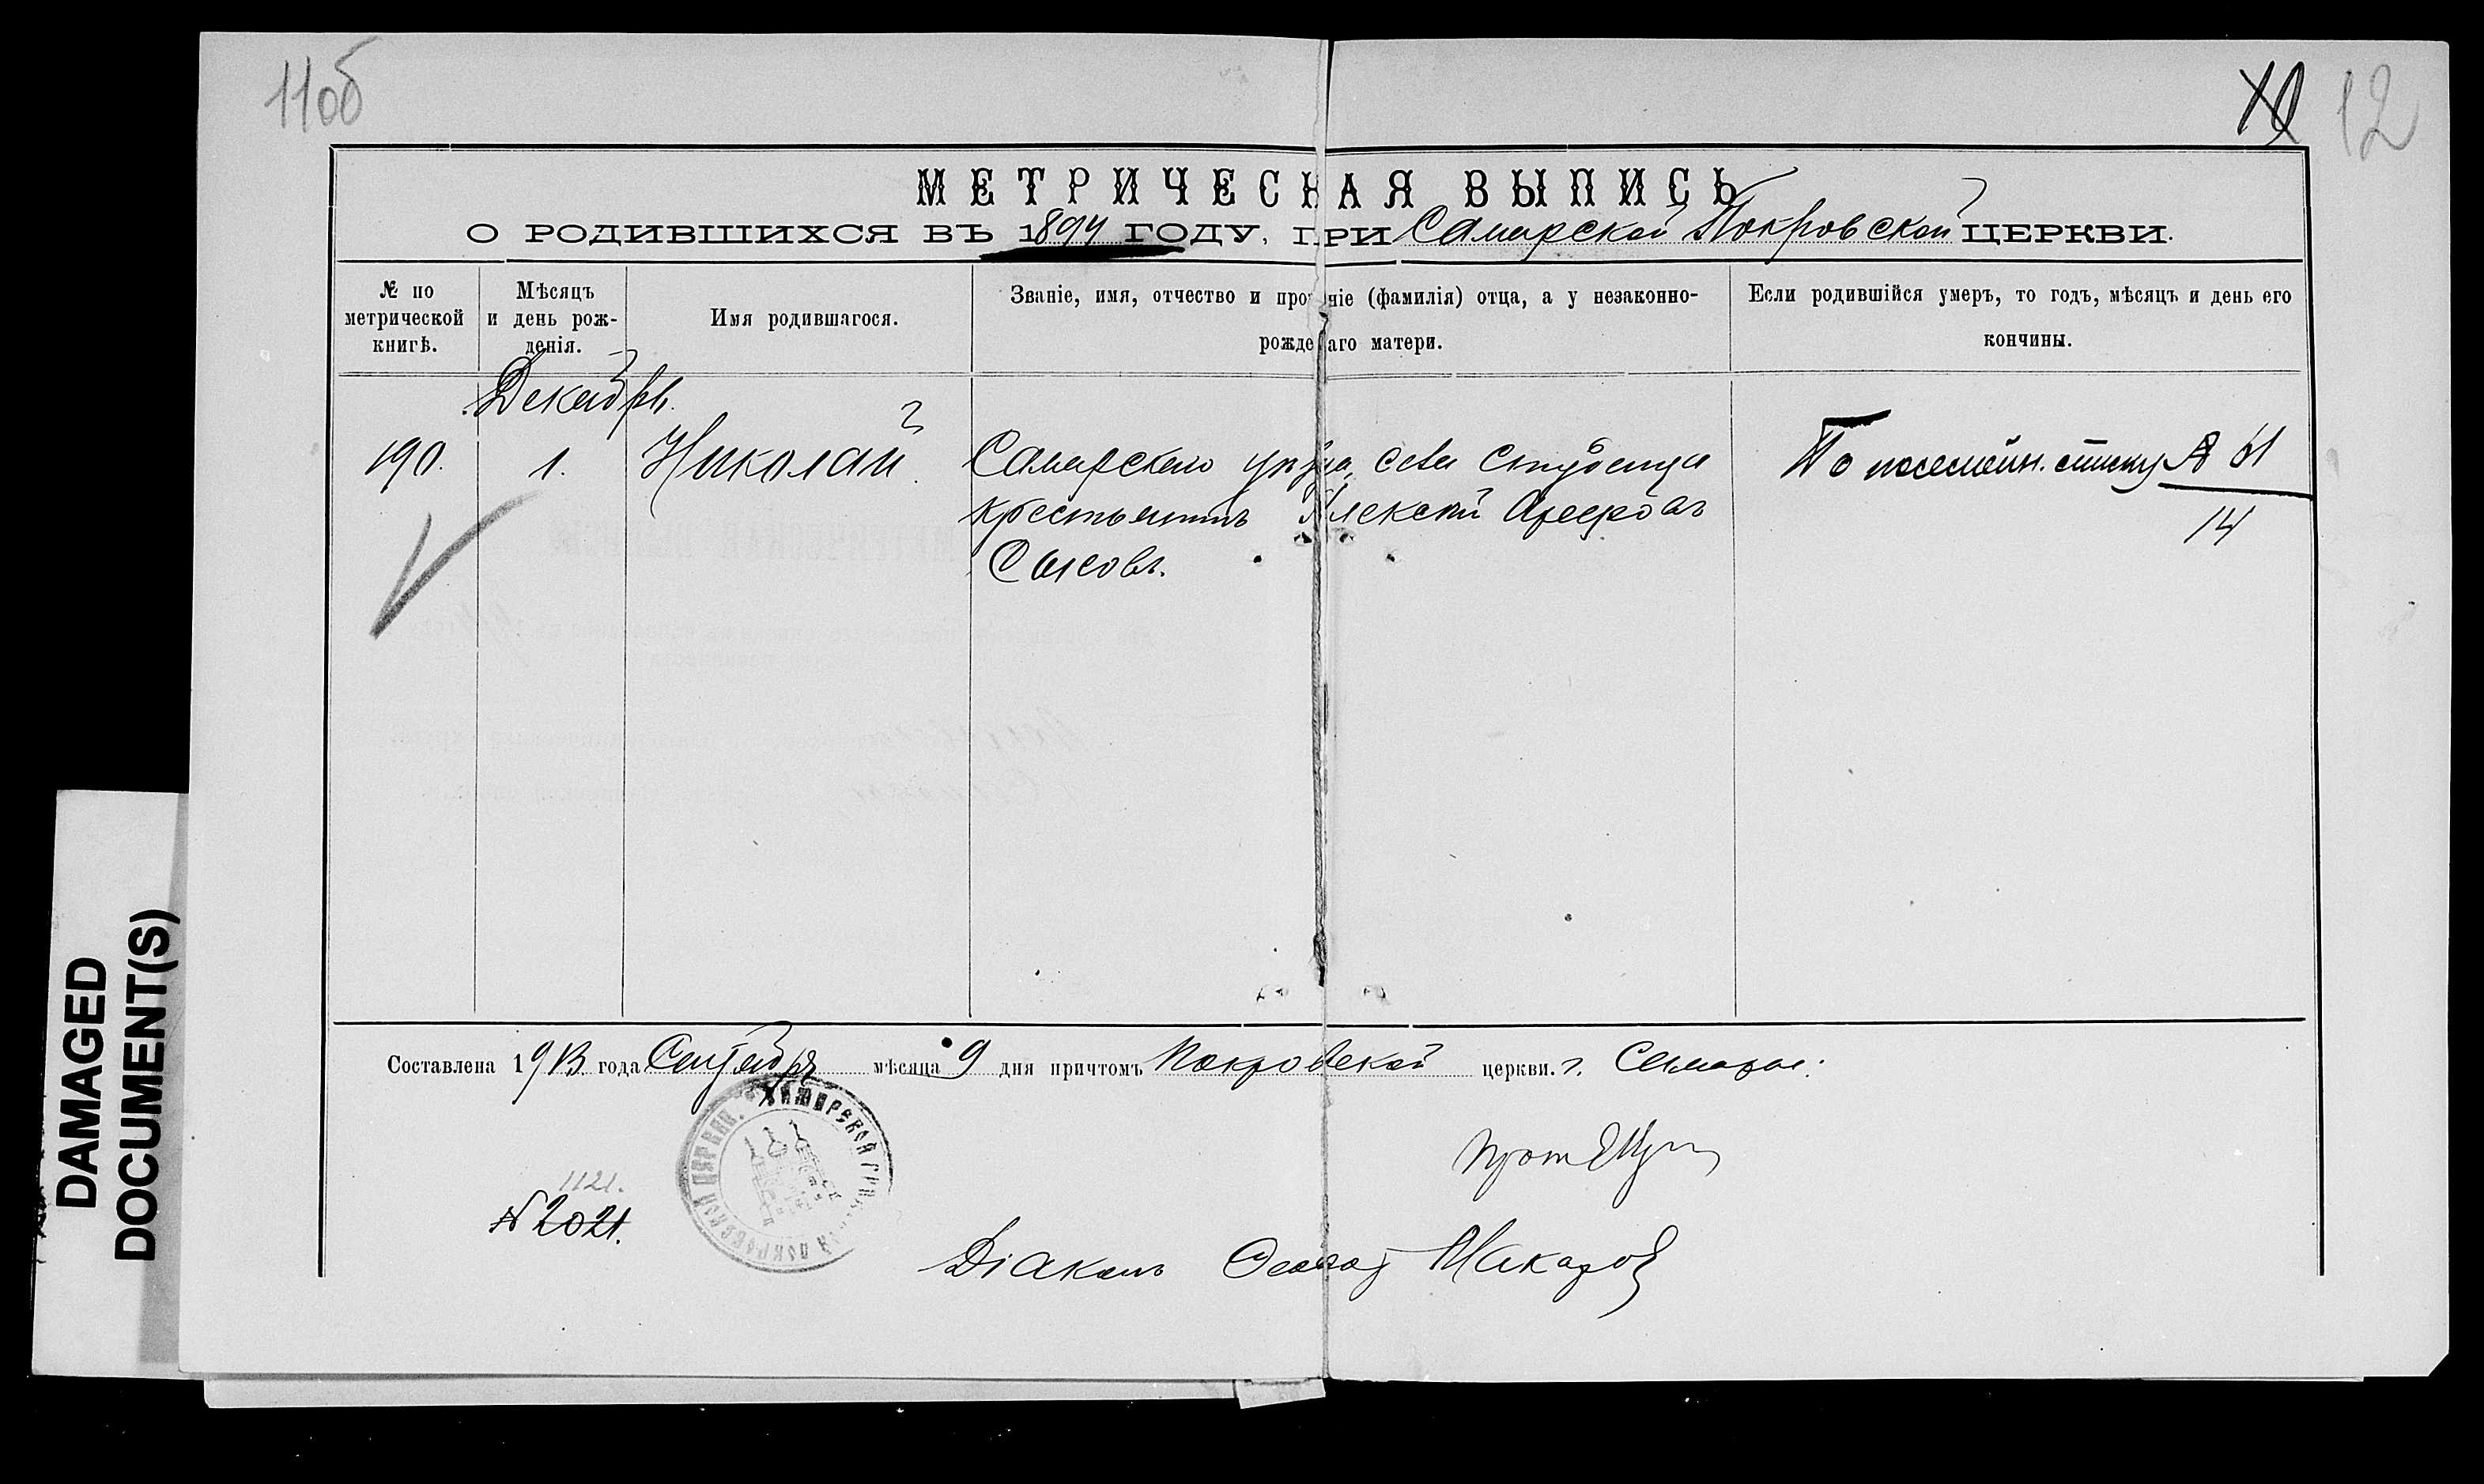 11об
10 12
МЕТРИЧЕСКАЯ ВЫПИСЬ
О РОДИВШИХСЯ ВЪ 1894 ГОДУ, ПРИ Самарской Покровской ЦЕРКВИ.
№ по метрической книгѣ.
Мѣсяцъ и день рожденія.
Имя родившагося.
Званіе, имя, отчество и прозваніе (фамилія) отца, а у незаконнорожденнаго матери.
Если родившійся умеръ, то годъ, мѣсяцъ и день его кончины.
Декабрь.
190. 1. Николай
Самарскаго уѣзда, села Студенца
крестьянинъ Алексѣй
Сысовъ.
По посемейн. списку № 61
14
Составлена 1913 года Сентября мѣсяца 9 дня причтомъ Покровской церкви. г. Самары.
1121.
№ 2021.
Діаконъ Макаров
DAMAGED
DOCUMENT(S)